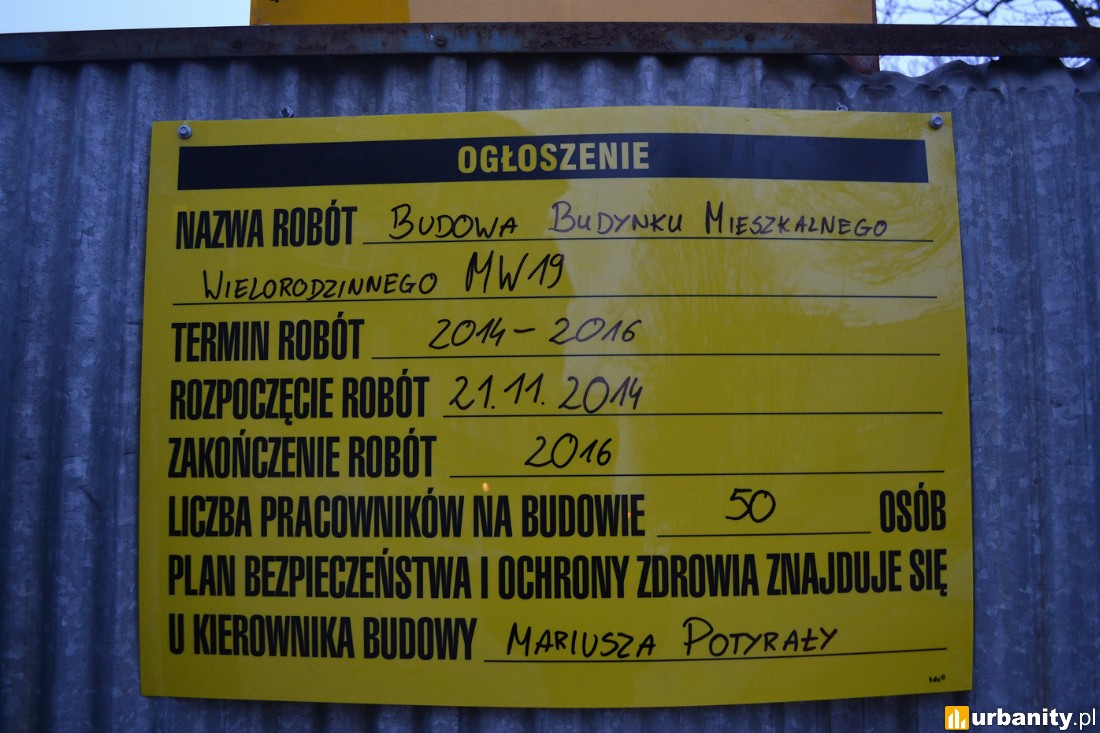 OGŁOSZENIE
NAZWA ROBÓT BUDOWA BUDYNKU MIESZKALNEGO
WIELORODZINNEGO MW19
TERMIN ROBÓT 2014-2016
ROZPOCZĘCIE ROBÓT 21.11.2014
ZAKOŃCZENIE ROBÓT 2016
LICZBA PRACOWNIKÓW NA BUDOWIE 50 OSÓB
PLAN BEZPIECZEŃSTWA I OCHRONY ZDROWIA ZNAJDUJE SIĘ
U KIEROWNIKA BUDOWY MARIUSZA POTYRAŁY
urbanity.pl